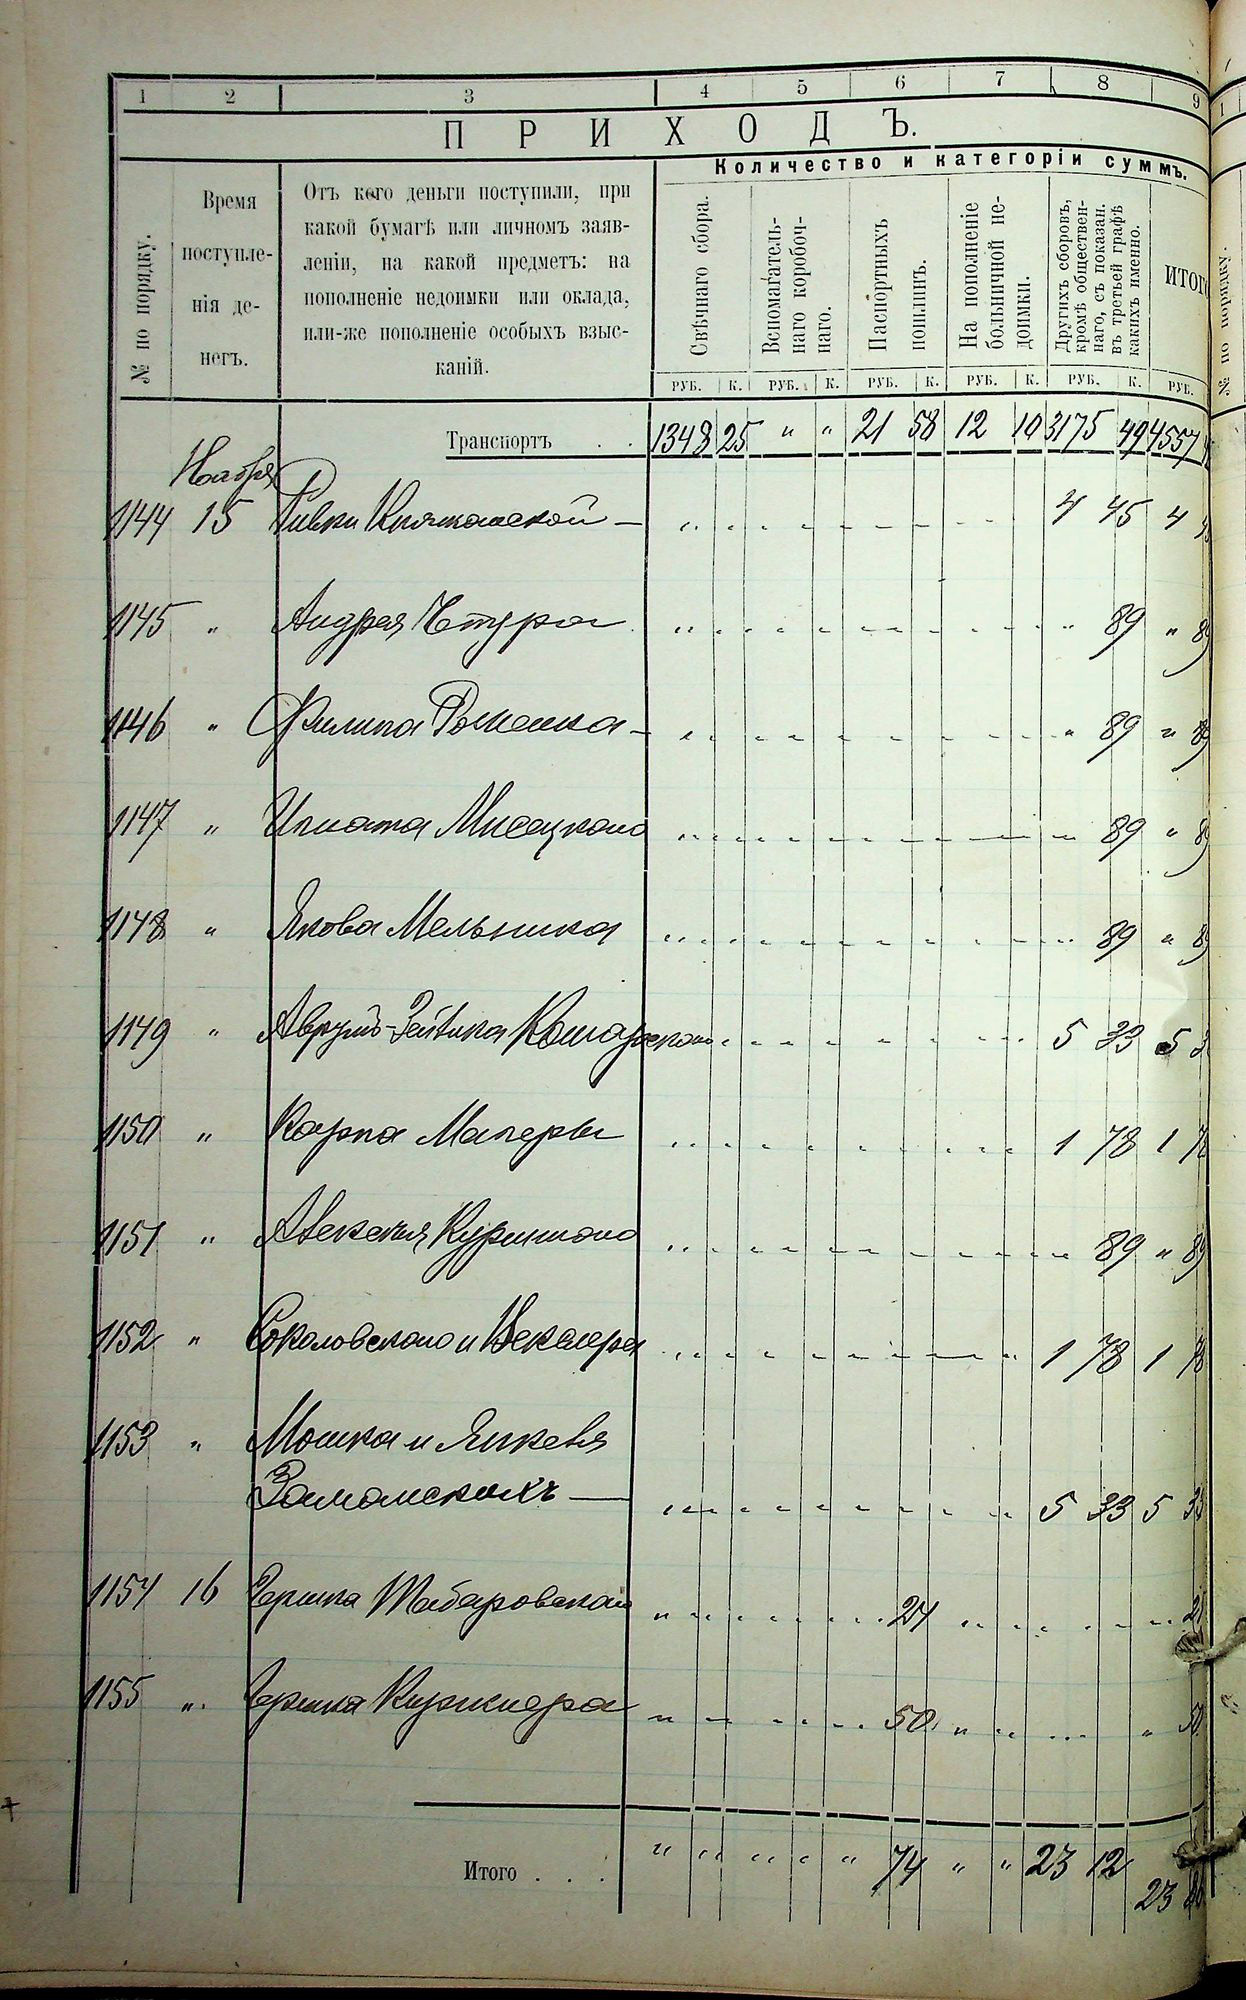 1 2 3 4 5 6 7 8 9
ПРИХОДЪ.
Количество и категоріи суммъ.
№ по порядку.
Время
поступле-
нія де-
негъ.
Отъ кого деньги поступили, при
какой бумагѣ или личномъ заяв-
леніи, на какой предметъ: на
пополненіе недоимки или оклада,
или-же пополненіе особыхъ взыс-
каній.
Свѣчнаго сбора.
Вспомагатель-
наго коробоч-
наго.
Паспортныхъ
пошлинъ.
На пополненіе
больничной не-
доимки.
Другихъ сборовъ,
кромѣ обществен-
наго, съ показан.
въ третьей графѣ
какихъ именно.
ИТОГО
РУБ. К. РУБ. К. РУБ. К. РУБ. К. РУБ. К. РУБ.
Транспортъ . . 1348 25 " " 21 58 12 10 3175 49 4557
Ноября
1144 15 Ривки 4 45 4
1145 " Андрея " 89 " 89
1146 " Филипа Романка " 89 " 89
1147 " Игната Мисецкого " 89 " 89
1148 " Якова Мельника 89 " 89
1149 " Аврумъ-Зейвика 5 33 5
1150 " Карпа 1 78 1 78
1151 " Алексея 89 " 89
1152 " Соколовского и Векслера 1 78 1 78
1153 " Мошка и Янкеля
Заманскихъ 5 33 5 33
1154 16 Гершка 24
1155 " Гершка Киржнера 50 " 50
Итого . . . " " " " " 74 " " 23 12
23 86